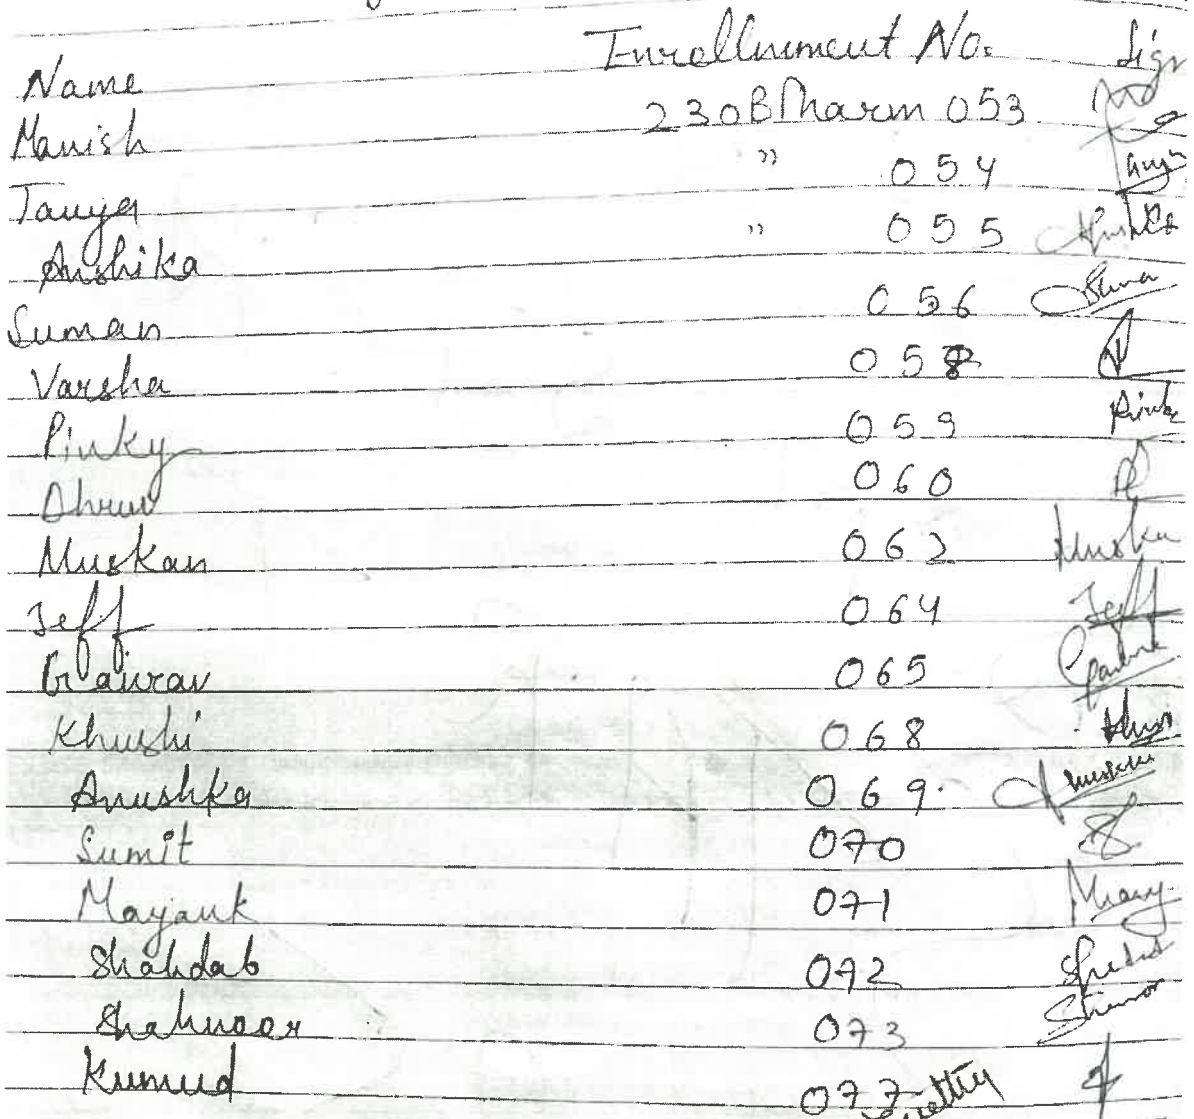 Name Enrollnment No. Sign
Manish 230BPharm 053
Tanya " 054
Anshika " 055
Suman 056 Suma
Varsha 058
Pinky 059 Pinky
Dhruv 060
Muskan 062 Muska
Jeff 064 Jeff
Gaurav 065
Khushi 068
Anushka 069.
Sumit 070
Mayank 071
Shahdab 072
Shahnoor 073
Kumud 077